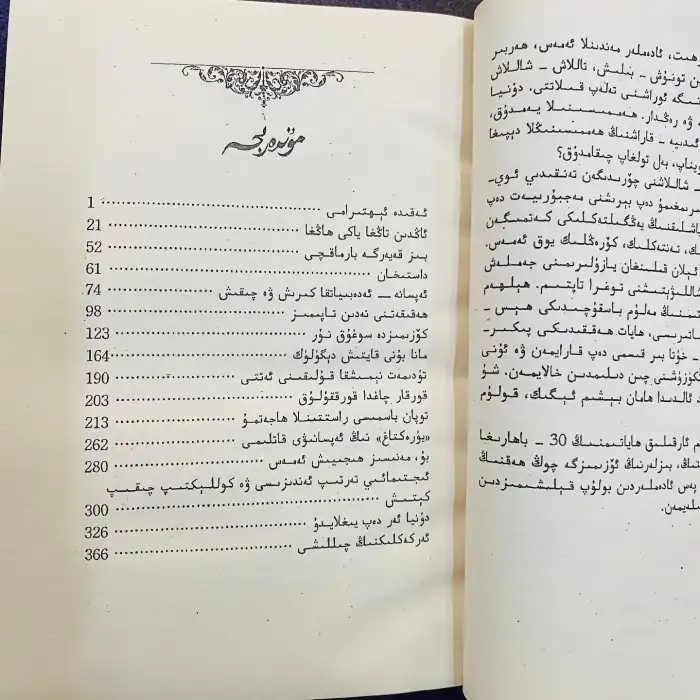 مۇندەرىجە
ئەقىدە ئېھتىرامى 1
ئاڭدىن تاڭغا ياكى ھاڭغا 21
بىز قەيەرگە بارماقچى 52
داستىخان 61
ئەپسانە ـــ ئەدەبىياتقا كىرىش ۋە چىقىش 74
ھەقىقەتنى نەدىن تاپىمىز 98
كۆزىمىزدە سوغۇق نۇر 123
مانا بۇنى قايتىش دېگۈلۈك 164
نېمىشقا قۇلىقىنى ئەتتى 190
قورقار چاغدا قورققۇلۇق 203
توپان باسمىسى راستتىنلا ھاجەتمۇ 213
«بۇرەكتاغ» نىڭ ئەپسانىۋى قاتلىمى 262
بۇ، مەنىسىز ھىجىيىش ئەمەس 280
ئىجتىمائىي تەرتىپ ئەندىزىسى ۋە كوللېكتىپ چىقىپ
كېتىش 300
دۇنيا ئەر دەپ يىغلايدۇ 326
ئەركەكلىكنىڭ چىللىشى 366
ئادەملەر مەندىنلا ئەمەس، ھەربىر
تونۇش - بىلىش، تاللاش - شاللاش
ئوراشنى تەلەپ قىلاتتى. دۇنيا
ۋە رەڭدار. ھەممىسىنىلا يەمدۇق،
ئىدىيە - قاراشنىڭ ھەممىسىنىڭلا دېپىغا
بەل تولغاپ چىقامدۇق؟
- شاللاشنى چۆرىدىگەن تەنقىدىي ئوي-
دەپ بېرىشنى مەجبۇرىيەت دەپ
يەڭگىلتەكلىكى كەتمىگەن
تەنتەكلىك، كۆرەڭلىك يوق ئەمەس.
بىلان قىلىنغان يازمىلىرىمنى جەملەش
توغرا تاپتىم. ھېلھەم
مەلۇم باسقۇچىدىكى ھېس-
ھايات ھەققىدىكى پىكىر-
- خۇتا بىر قىسمى دەپ قارايمەن ۋە ئۇنى
چىن دىلىمدىن خالايمەن. شۇ
ئالدىدا ھامان بېشىم ئېگىك، قولۇم
ئارقىلىق ھاياتىمنىڭ 30 - باھارىغا
بىزلەرنىڭ ئۆزىمىزگە چوڭ ھەقنىڭ
پەس ئادەملەردىن بولۇپ قېلىشىمىزدىن